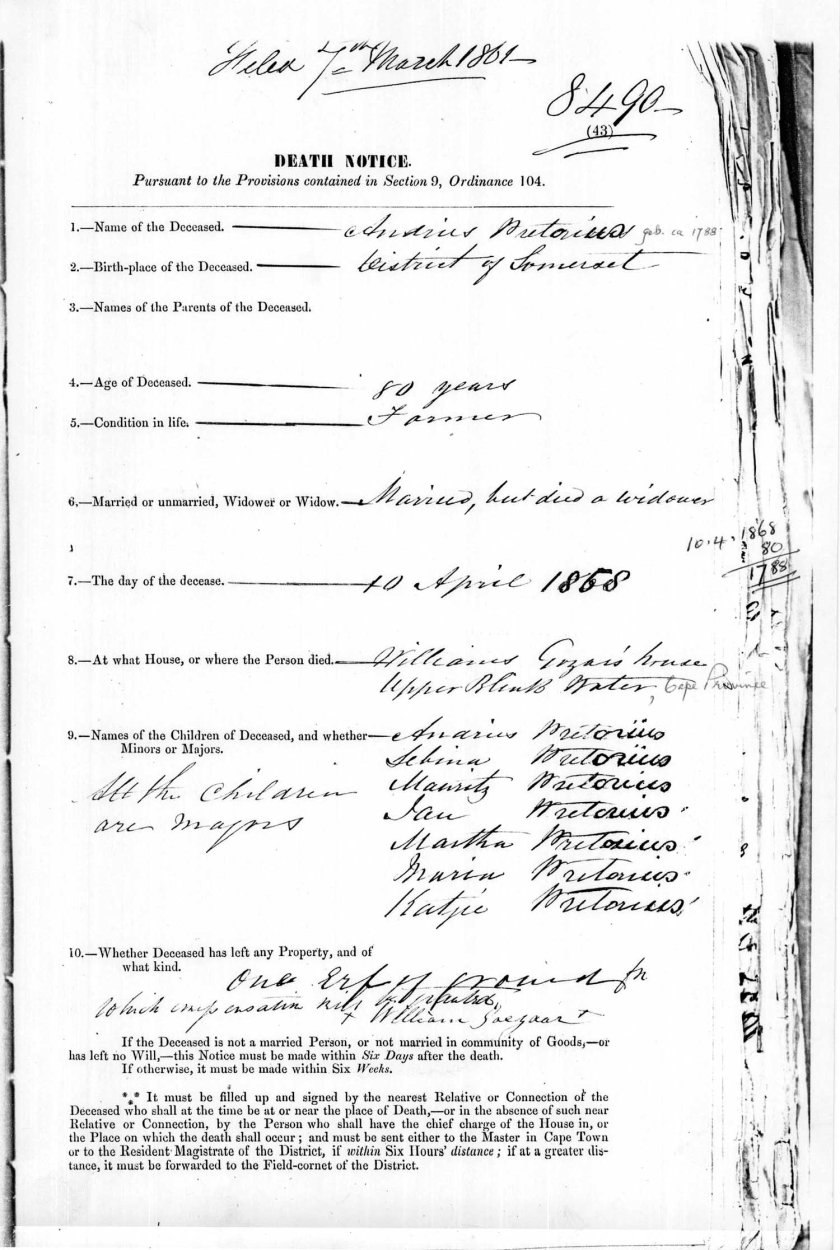 Filed 7th March 1861
8490
(43)
DEATH NOTICE.
Pursuant to the Provisions contained in Section 9, Ordinance 104.
1.—Name of the Deceased. Andries Pretorius geb. ca 1788
2.—Birth-place of the Deceased. District of Somerset
3.—Names of the Parents of the Deceased.
4.—Age of Deceased. 80 years
5.—Condition in life. Farmer
6.—Married or unmarried, Widower or Widow. Married, but died a widower
10.4.1868
80
1788
7.—The day of the decease. 10 April 1868
8.—At what House, or where the Person died. Williams house
Upper Blink Water, Cape Province
9.—Names of the Children of Deceased, and whether Minors or Majors.
Andries Pretorius
Sebina Pretorius
Mauritz Pretorius
Jan Pretorius
Martha Pretorius
Maria Pretorius
Katjie Pretorius
All the Children
are majors
10.—Whether Deceased has left any Property, and of
what kind.
One Erf of ground for
which compensation
William
If the Deceased is not a married Person, or not married in community of Goods,—or
has left no Will,—this Notice must be made within Six Days after the death.
If otherwise, it must be made within Six Weeks.
*** It must be filled up and signed by the nearest Relative or Connection of the
Deceased who shall at the time be at or near the place of Death,—or in the absence of such near
Relative or Connection, by the Person who shall have the chief charge of the House in, or
the Place on which the death shall occur; and must be sent either to the Master in Cape Town
or to the Resident Magistrate of the District, if within Six Hours' distance; if at a greater dis-
tance, it must be forwarded to the Field-cornet of the District.